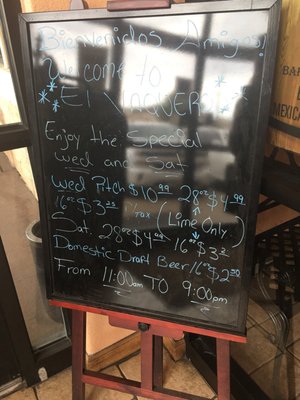 Bienvenidos Amigos!
Welcome to
El Vaquero
Enjoy the Special
Wed and Sat
Wed Pitch $10.99 28oz $4.99
16oz $3.25 + Tax (Lime Only)
Sat. 28oz $4.99 16oz $3.25
Domestic Draft Beer 16oz $2.50
From 11:00am TO 9:00pm
MEXIC